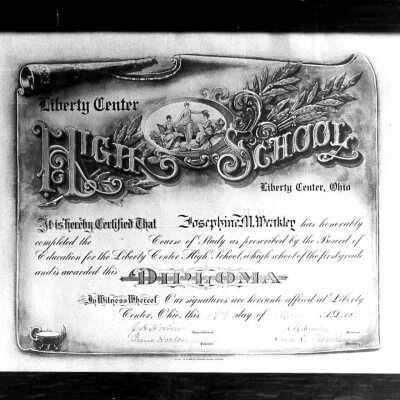 Liberty Center
HIGH SCHOOL
Liberty Center, Ohio
It is hereby Certified That Josephine M. Weakley has honorably
completed the Course of Study as prescribed by the Board of
Education for the Liberty Center High School, a high school of the first grade
and is awarded this DIPLOMA
In Witness Whereof, Our signatures are hereunto affixed at Liberty
Center, Ohio, this day of A.D.